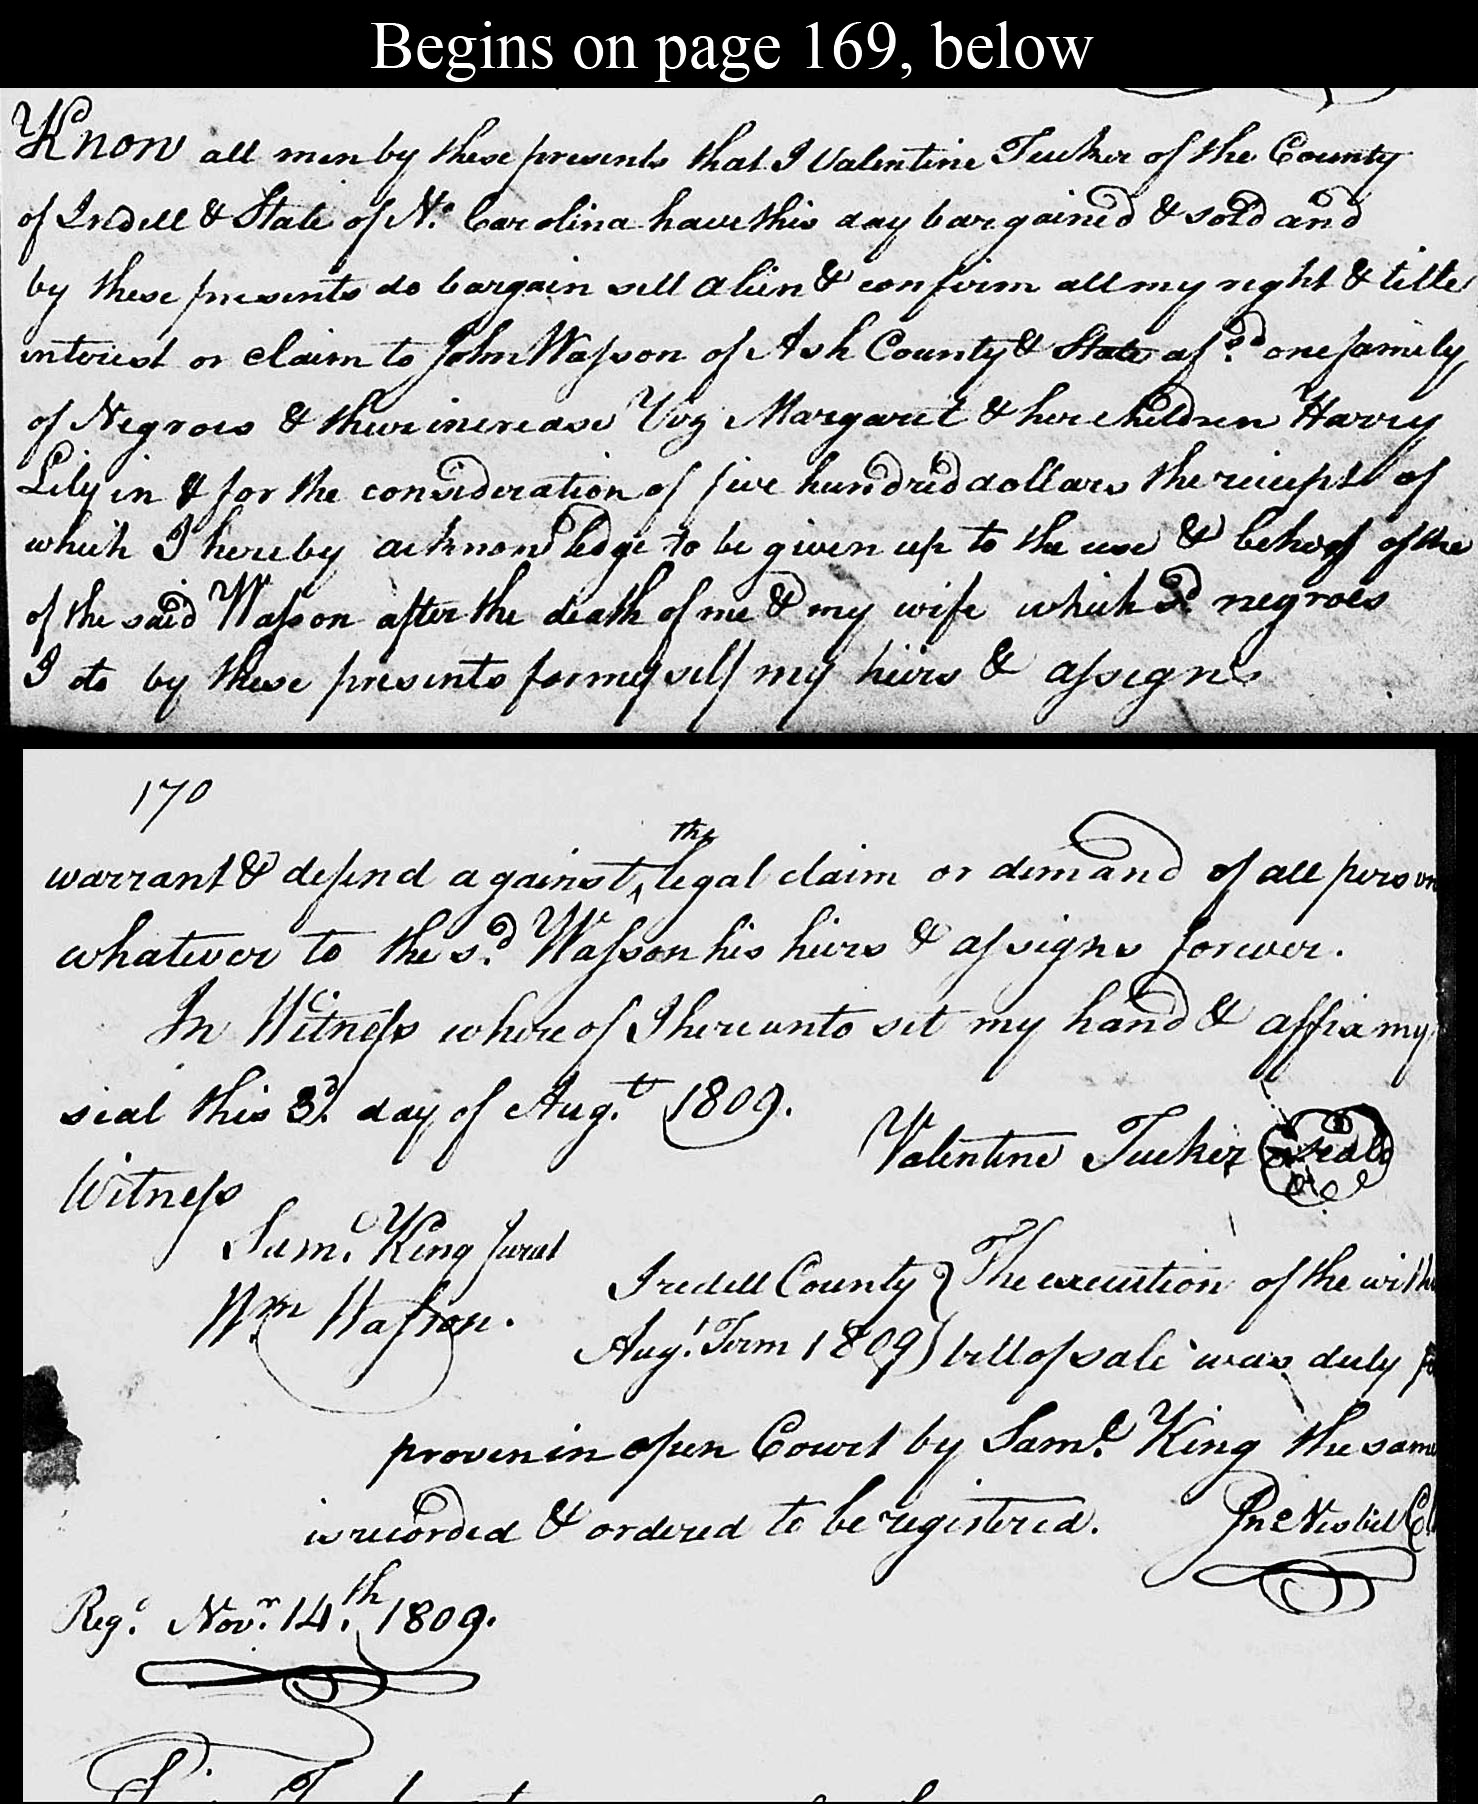 Begins on page 169, below
Know all men by these presents that I Valentine Tucker of the County
of Iredell & State of No. Carolina have this day bargained & sold and
by these presents do bargain sell alien & confirm all my right & title
interest or claim to John Wasson of Ash County & State afsd. one family
of Negroes & their increase Viz Margaret & her children Harvey
Lily in & for the consideration of five hundred dollars the reciept of
which I hereby acknowledge to be given up to the use & behoof of the
of the said Wasson after the death of me & my wife which sd. negroes
I do by these presents for myself my heirs & assigns
170
warrant & defend against the legal claim or demand of all person
whatever to the sd. Wasson his heirs & assigns forever.
In Witness where of I hereunto set my hand & affix my
seal this 3d. day of Augt. 1809.
Valentine Tucker seal
Witness
Saml. King Jurat
Wm Wasson.
Iredell County } The execution of the with
Augt. Term 1809 } bill of sale was duly
proven in open Court by Saml. King the same
is recorded & ordered to be registered. Jno Nesbit Cl
Regd. Novr. 14th. 1809.